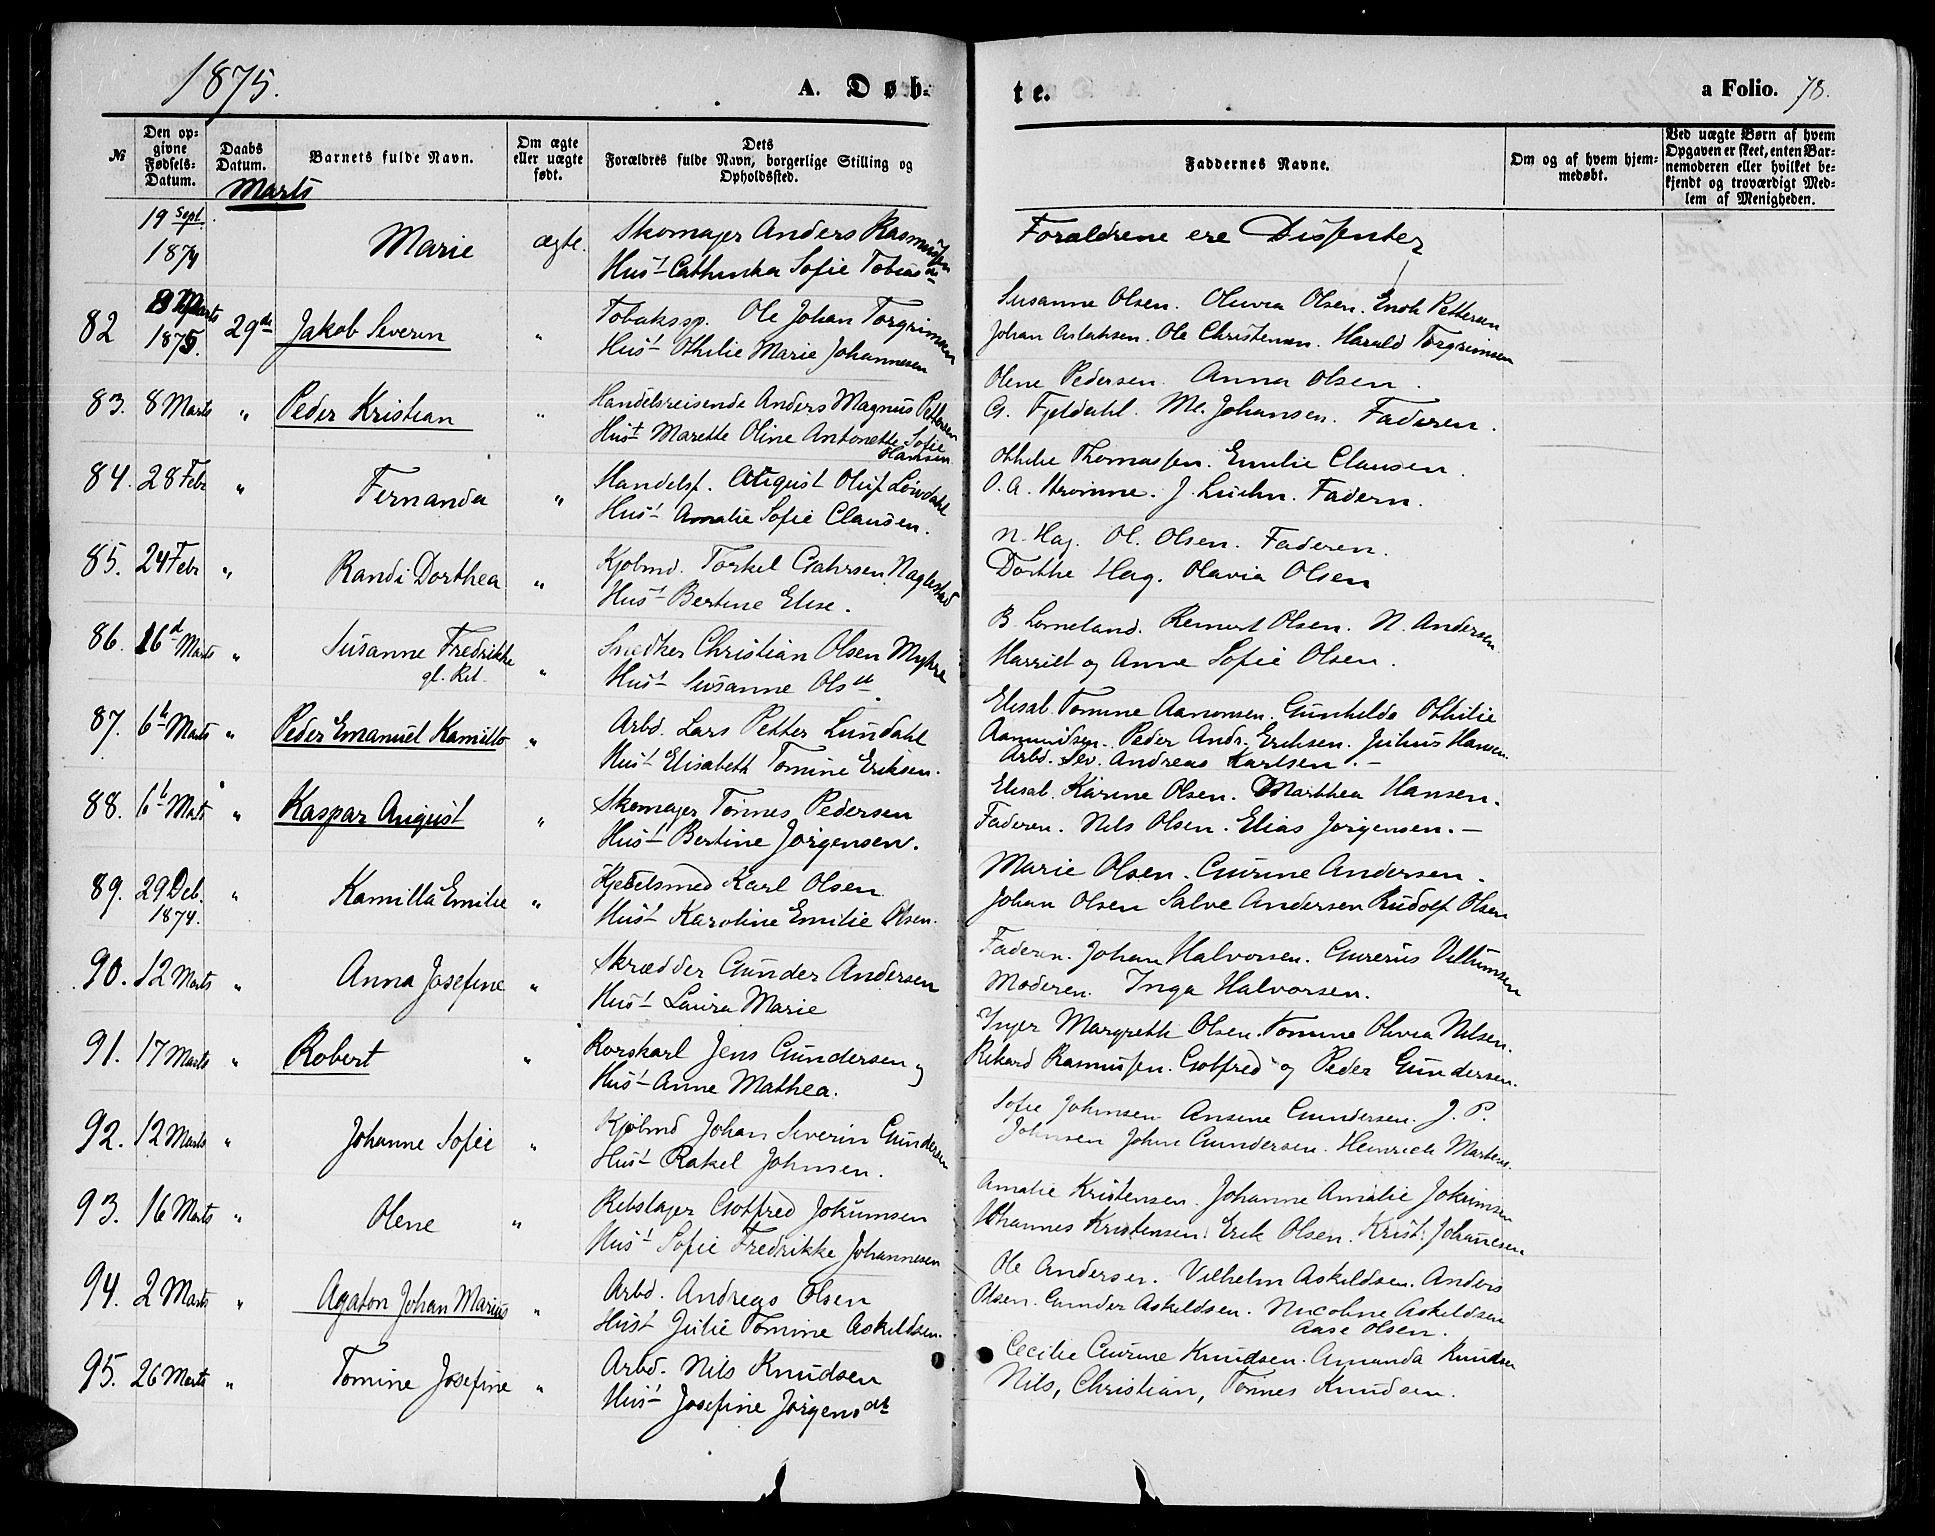 1875.
A. Døb-
te.
a Folio. 78.
№
Den op-
givne
Fødsels-
Datum.
Daabs
Datum.
Barnets fulde Navn.
Om ægte
eller uægte
født.
Dets
Forældres fulde Navn, borgerlige Stilling og
Opholdssted.
Faddernes Navne.
Om og af hvem hjem-
medøbt.
Ved uægte Børn af hvem
Opgaven er skeet, enten Bar-
nemoderen eller hvilket be-
kjendt og troværdigt Med-
lem af Menigheden.
Marts
19 Sept.
1874
Marie
ægte.
Skomager Anders Rasmussen
Hust Cathinka Sofie Tobiasdr
Forældrene ere Dissenter
82
8 Marts
1875.
29de
Jakob Severin
"
Tobakssp. Ole Johan Torgrimsen
Hust Othilie Marie Johannesen
Susanne Olsen. Olivia Olsen. Enok Pettersen
Johan Aslaksen. Ole Christensen. Harald Torgrimsen
83. 8 Marts " Peder Kristian "
Handelsreisende Anders Magnus Pettersen
Hust Marette Oline Antonette Sofie
Hansen
Olene Pedersen. Anna Olsen.
G. Fjeldahl. M. Johansen. Faderen.
84. 28 Febr " Fernanda "
Handelsf. August Oluf Løvdahl
Hust Amalie Sofie Clausen.
Othilie Thomassen. Emilie Clausen.
O. A. Strømme. J. Luihn. Fadern.
85. 24 Febr " Randi Dorthea "
Kjøbmd. Torkel Gahrsen Naglestad
Hust Bertine Elise.
N. Hag. Ol. Olsen. Faderen.
Dorthe Hag. Olavia Olsen
86. 16d Marts " Susanne Fredrikke
gl. Rit. "
Snedker Christian Olsen Myhre
Hust Susanne Olsdt.
B. Lorneland. Reinert Olsen. N. Andersen
Harriet og Anne Sofie Olsen.
87. 6t Marts " Peder Emanuel Kamillo "
Arbd. Lars Petter Lundahl
Hust Elisabeth Tomine Eriksen.
Elisab. Tomine Aanonsen. Gunhilde Othilie
Aamundsen. Peder Andr. Eriksen. Julius Hansen
Arbd. Sev. Andreas Karlsen. -
88. 6t Mats " Kaspar August "
Skomager Tønnes Pedersen
Hust Bertine Jørgensen.
Elisab. Karine Olsen. Marthea Hansen.
Faderen. Nils Olsen. Elias Jørgensen. -
89. 29 Deb.
1874. " Kamilla Emilie "
Kjedelsmed Karl Olsen
Hust Karoline Emilie Olsen.
Marie Olsen. Gurine Andersen.
Johan Olsen Salve Andersen Rudolf Olsen
90. 12 Marts " Anna Josefine "
Skrædder Gunder Andersen
Hust Laura Marie
Faderen. Johan Halvorsen. Gurerius Villumsen
Moderen. Inga Halvorsen.
91. 17 Marts " Robert "
Rorskarl Jens Gundersen og
Hust Anne Mathea.
Inger Margrethe Olsen. Tomine Olivia Nilsen.
Rikard Rasmussen. Gotfred og Peder Gundersen.
92. 12 Marts " Johanne Sofie "
Kjøbmd Johan Severin Gundersen
Hust Rakel Johnsen.
Sofie Johnsen Ansine Gundersen. J. P.
Johnsen John Gundersen. Heinrich Martens.
93. 16 Marts " Olene "
Rebslager Gotfred Jokumsen
Hust Sofie Fredrikke Johannesen
Amalie Kristensen. Johanne Amalie Jokumsen
Johannes Kristensen. Erik Olsen. Krist. Johanesen
94. 2 Marts " Agaton Johan Marius "
Arbd. Andreas Olsen
Hust Julie Tomine Askildsen.
Ole Andersen. Vilhelm Askildsen. Anders
Olsen. Gunder Askildsen. Nicoline Askildsen
Aase Olsen.
95. 26 Marts " Tomine Josefine "
Arbd. Nils Knudsen
Hust Josefine Jørgensdt
Cecilie Gurine Knudsen. Amanda Knudsen
Nils, Christian, Tønnes Knudsen.